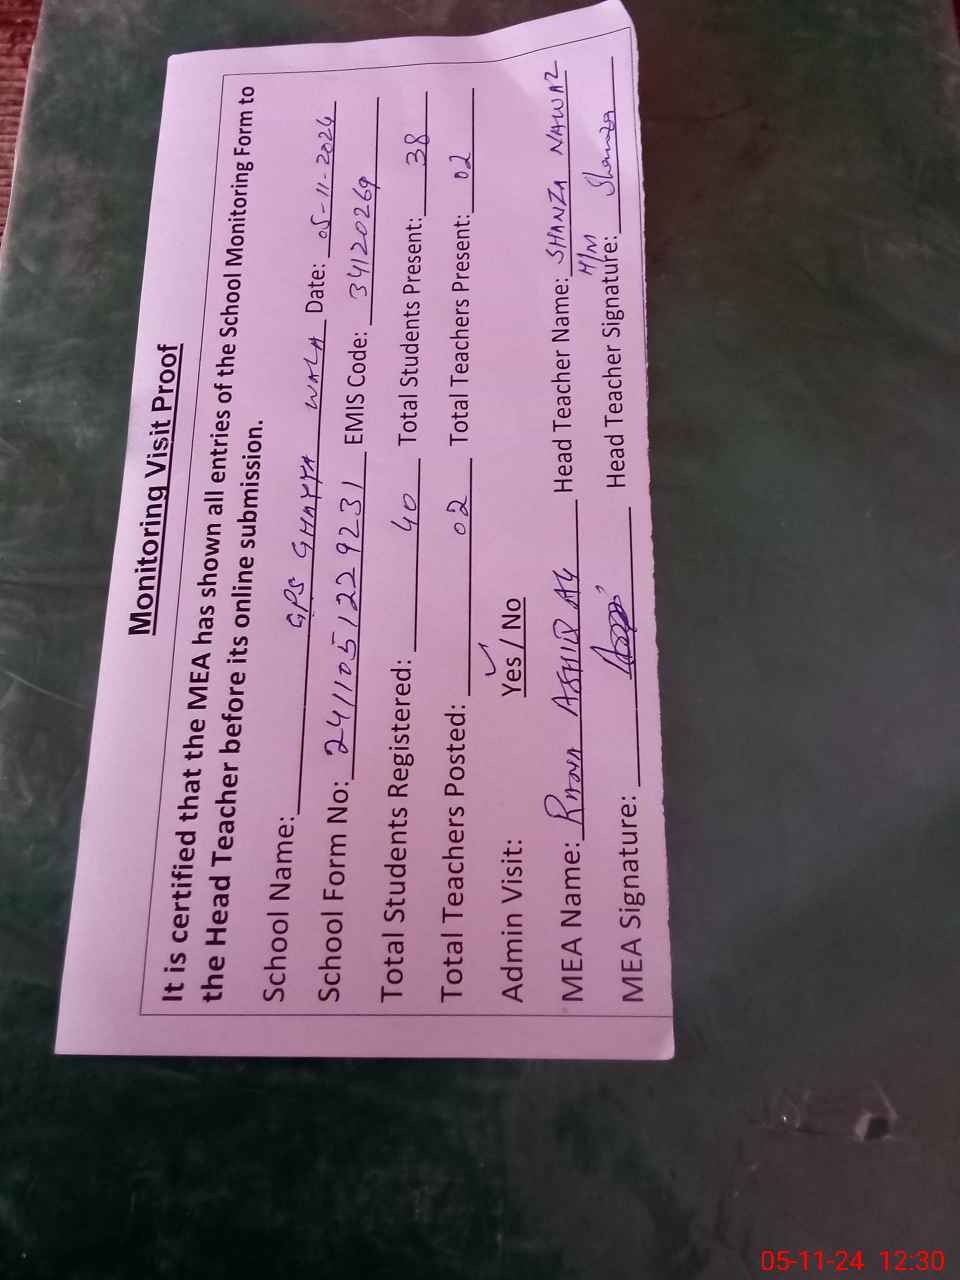 Monitoring Visit Proof
It is certified that the MEA has shown all entries of the School Monitoring Form to
the Head Teacher before its online submission.
School Name: GPS GHAYYA WALA Date: 05-11-2024
School Form No: 2411051229231 EMIS Code: 34120269
Total Students Registered: 40 Total Students Present: 38
Total Teachers Posted: 02 Total Teachers Present: 02
Admin Visit: Yes / No
MEA Name: Rana Head Teacher Name: SHANZA NAWAZ
H/M
MEA Signature: Head Teacher Signature: Shanza
05-11-24 12:30